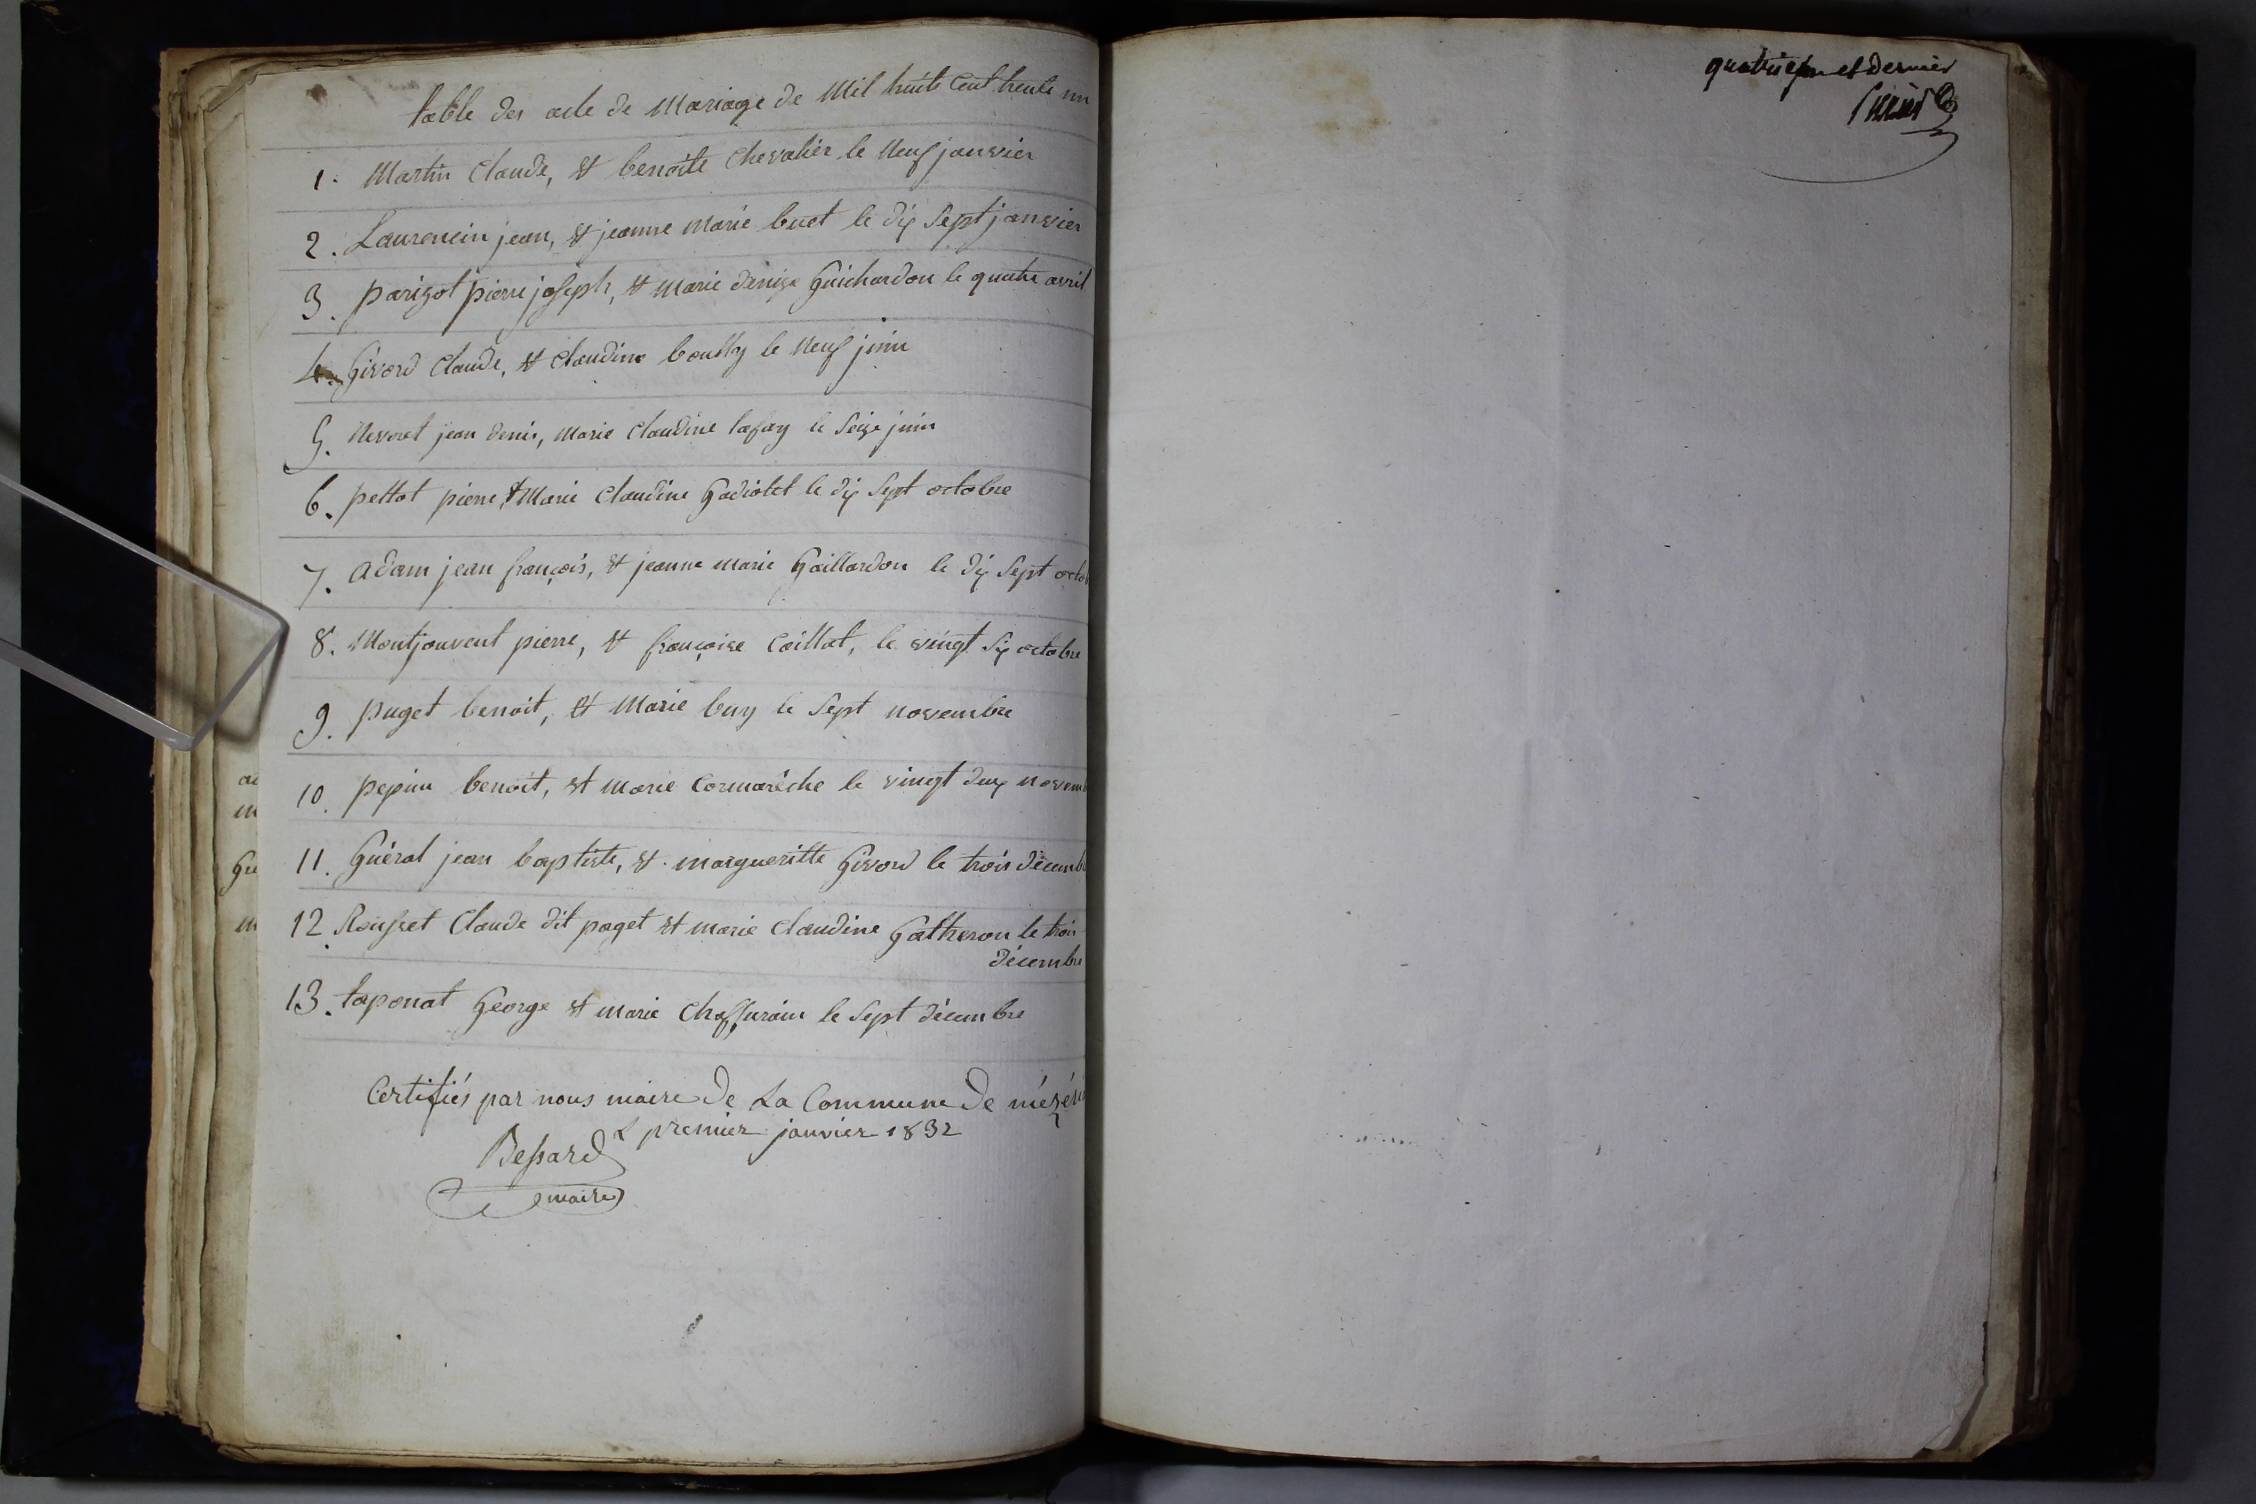 table des acte de Mariage de Mil huit Cent trente un
1. Martin Claude, et benoite Chevalier le Neuf janvier
2. Laurencin jean, et jeanne Marie buet le dix Sept janvier
3. parizot pierre joseph, et Marie denise Guichardon le quatre avril
4. Givord Claude, et Claudine boully le Neuf juin
5. Nevoret jean denis, Marie Claudine lafay le Seize juin
6. pettot pierre, et Marie Claudine Gadiolet le dix Sept octobre
7. adam jean françois, et jeanne marie Gaillardon le dix Sept octob
8. Montjouvent pierre, et françoise Caillat, le vingt Six octobre
9. puget benoit, et Marie buy le Sept novembre
10. pepin benoit, et marie Cormarèche le vingt deux novem
11. Guérat jean baptiste, et margueritte Givord le trois décemb
12. Rousset Claude dit paget et marie Claudine Gatheron le trois
décembre
13. taponat George et marie Chaffurain le Sept décembre
Certifiés par nous maire de La Commune de mézéri
L premier janvier 1832
Bessard
maire
quatrieme et dernier
ac
m
Gu
m